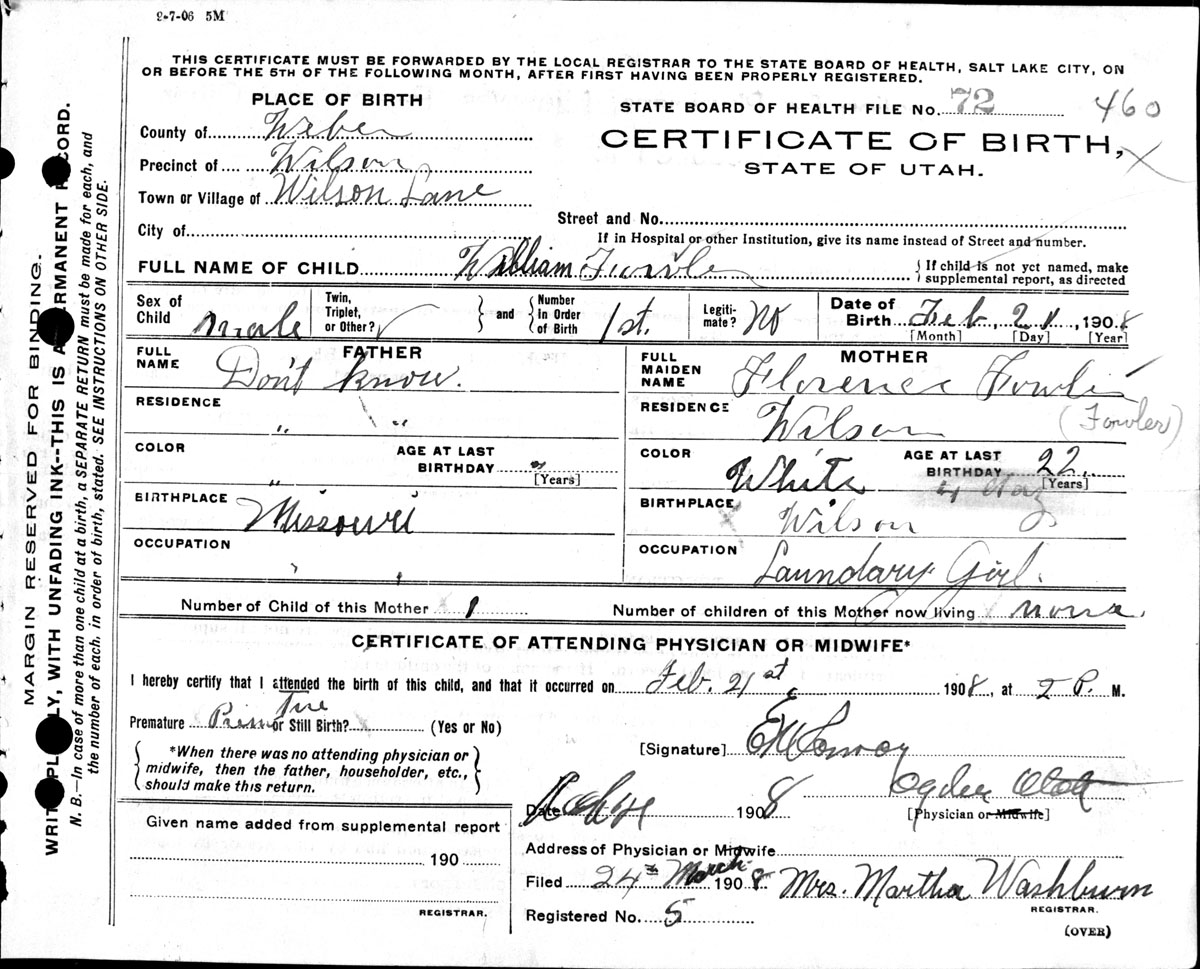 9-7-06 5M
THIS CERTIFICATE MUST BE FORWARDED BY THE LOCAL REGISTRAR TO THE STATE BOARD OF HEALTH, SALT LAKE CITY, ON
OR BEFORE THE 5TH OF THE FOLLOWING MONTH, AFTER FIRST HAVING BEEN PROPERLY REGISTERED.
MARGIN RESERVED FOR BINDING.
WRITE PLAINLY, WITH UNFADING INK--THIS IS A PERMANENT RECORD.
N. B.—In case of more than one child at a birth, a SEPARATE RETURN must be made for each, and
the number of each. in order of birth, stated. SEE INSTRUCTIONS ON OTHER SIDE.
PLACE OF BIRTH
STATE BOARD OF HEALTH FILE No. 72 460
County of Weber
CERTIFICATE OF BIRTH,
Precinct of Wilson
STATE OF UTAH.
Town or Village of Wilson Lane
Street and No.
City of
If in Hospital or other Institution, give its name instead of Street and number.
FULL NAME OF CHILD William Fowler
{ If child is not yet named, make
supplemental report, as directed
Sex of Child male
Twin, Triplet, or Other?
} and {
Number In Order of Birth 1st.
Legiti-mate? No
Date of Birth Feb, 21, 1908
[Month] [Day] [Year]
FATHER
FULL NAME Don't know.
RESIDENCE " "
COLOR "
AGE AT LAST BIRTHDAY "
[Years]
BIRTHPLACE Missouri
OCCUPATION
MOTHER
FULL MAIDEN NAME Florence Fowler
(Fowler)
RESIDENCE Wilson
COLOR White
AGE AT LAST BIRTHDAY 22
[Years]
BIRTHPLACE Wilson
OCCUPATION Laundary Girl.
Number of Child of this Mother 1
Number of children of this Mother now living none
CERTIFICATE OF ATTENDING PHYSICIAN OR MIDWIFE*
I hereby certify that I attended the birth of this child, and that it occurred on Feb. 21st 1908, at 2 P. M.
Premature or Still Birth? (Yes or No)
[Signature] Conroy
{ *When there was no attending physician or
midwife, then the father, householder, etc.,
should make this return. }
Ogden
Date 1908
[Physician or Midwife]
Given name added from supplemental report
Address of Physician or Midwife
190
Filed 24th March 1908 Mrs. Martha Washburn
REGISTRAR.
REGISTRAR.
Registered No. 5
(OVER)